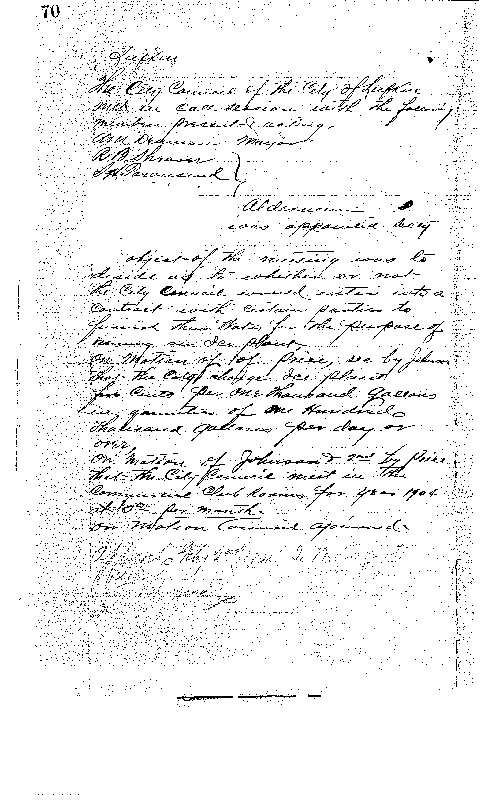 70
Lufkin
The City Council of the City of Lufkin
met in call session with the following
members present & acting.
Mayor
R. B. Shearer
Townsend
Aldermen
was appointed Secty
object of the meeting was to
decide as to whether or not
the City Council would enter into a
contract with certain parties to
furnish them Water for the purpose of
running an Ice plant.
On Motion of Price, sec by Johnson
that the City charge Ice plant
five Cents per One thousand Gallons
in quantities of One Hundred
thousand gallons per day or
over.
On Motion of Johnson & 2nd by Price
that the City Council meet in the
Commercial Club rooms for year 1904
at per month.
On Motion Council adjourned.